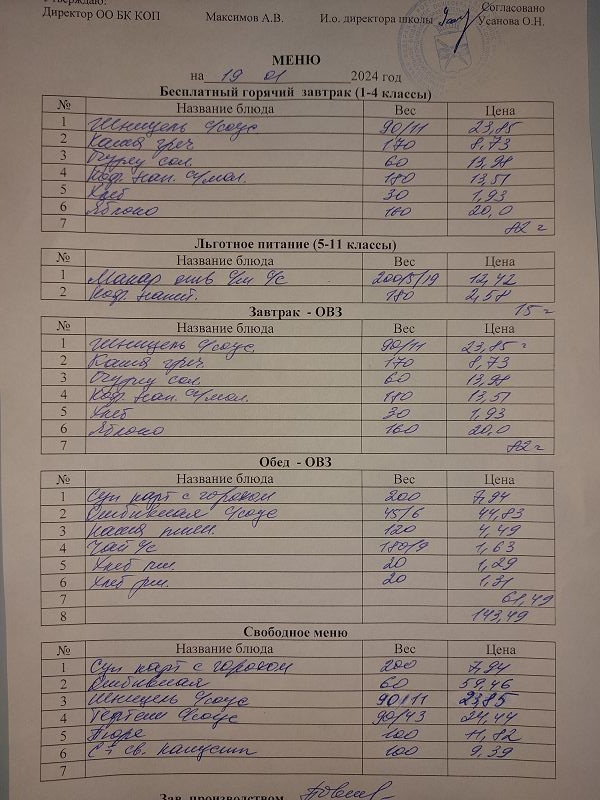 Утверждаю: Согласовано
Директор ОО БК КОП Максимов А.В. И.о. директора школы Усанова О.Н.
МЕНЮ
на 19 01 2024 год
Бесплатный горячий завтрак (1-4 классы)
№ Название блюда Вес Цена
1 Шницель с/соус 90/11 23,85
2 Каша греч. 170 8,73
3 Огурец сол. 60 13,98
4 Коф. нап. с/мол. 180 13,51
5 Хлеб 30 1,93
6 Яблоко 160 20,0
7 82 г
Льготное питание (5-11 классы)
№ Название блюда Вес Цена
1 Макар отв с/м с/с 200/5/19 12,42
2 Коф. напит. 180 2,58
15 г
Завтрак - ОВЗ
№ Название блюда Вес Цена
1 Шницель с/соус 90/11 23,85 г
2 Каша греч. 170 8,73
3 Огурец сол. 60 13,98
4 Коф. нап. с/мол. 180 13,51
5 Хлеб 30 1,93
6 Яблоко 160 20,0
7 82 г
Обед - ОВЗ
№ Название блюда Вес Цена
1 Суп карт с горохом 200 7,94
2 Отбивная с/соус 45/6 44,83
3 каша пшен. 120 4,49
4 Чай с/с 180/9 1,63
5 Хлеб пш. 20 1,29
6 Хлеб рж. 20 1,31
7 61,49
8 143,49
Свободное меню
№ Название блюда Вес Цена
1 Суп карт с горохом 200 7,94
2 Отбивная 60 59,46
3 Шницель с/соус 90/11 23,85
4 Тефтели с/соус 90/43 24,44
5 Пюре 100 11,82
6 С-т св. капусты 100 9,39
7
Зав. производством